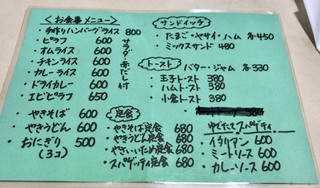 <お食事メニュー>
・手作りハンバーグライス 800
・ピラフ 600
・オムライス 600
・チキンライス 600
・カレーライス 600
・ドライカレー 600
・エビピラフ 650
サラダ
赤だし付
・やきそば 600
・やきうどん 600
・おにぎり 500
(3コ)
サンドイッチ
・たまご・ヤサイ・ハム 各450
・ミックスサンド 480
トースト バター・ジャム 各330
・玉子トースト 380
・ハムトースト 380
・小倉トースト 380
定食
・やきそば定食 680
・やきうどん定食 680
・やきめし定食 680
・スパゲッティ定食 680
ゆでたてスパゲティ
・イタリアン 600
・ミートソース 600
・カレーソース 600